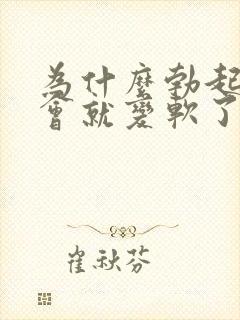 為什麼勃起
會就變軟了
崔秋芬